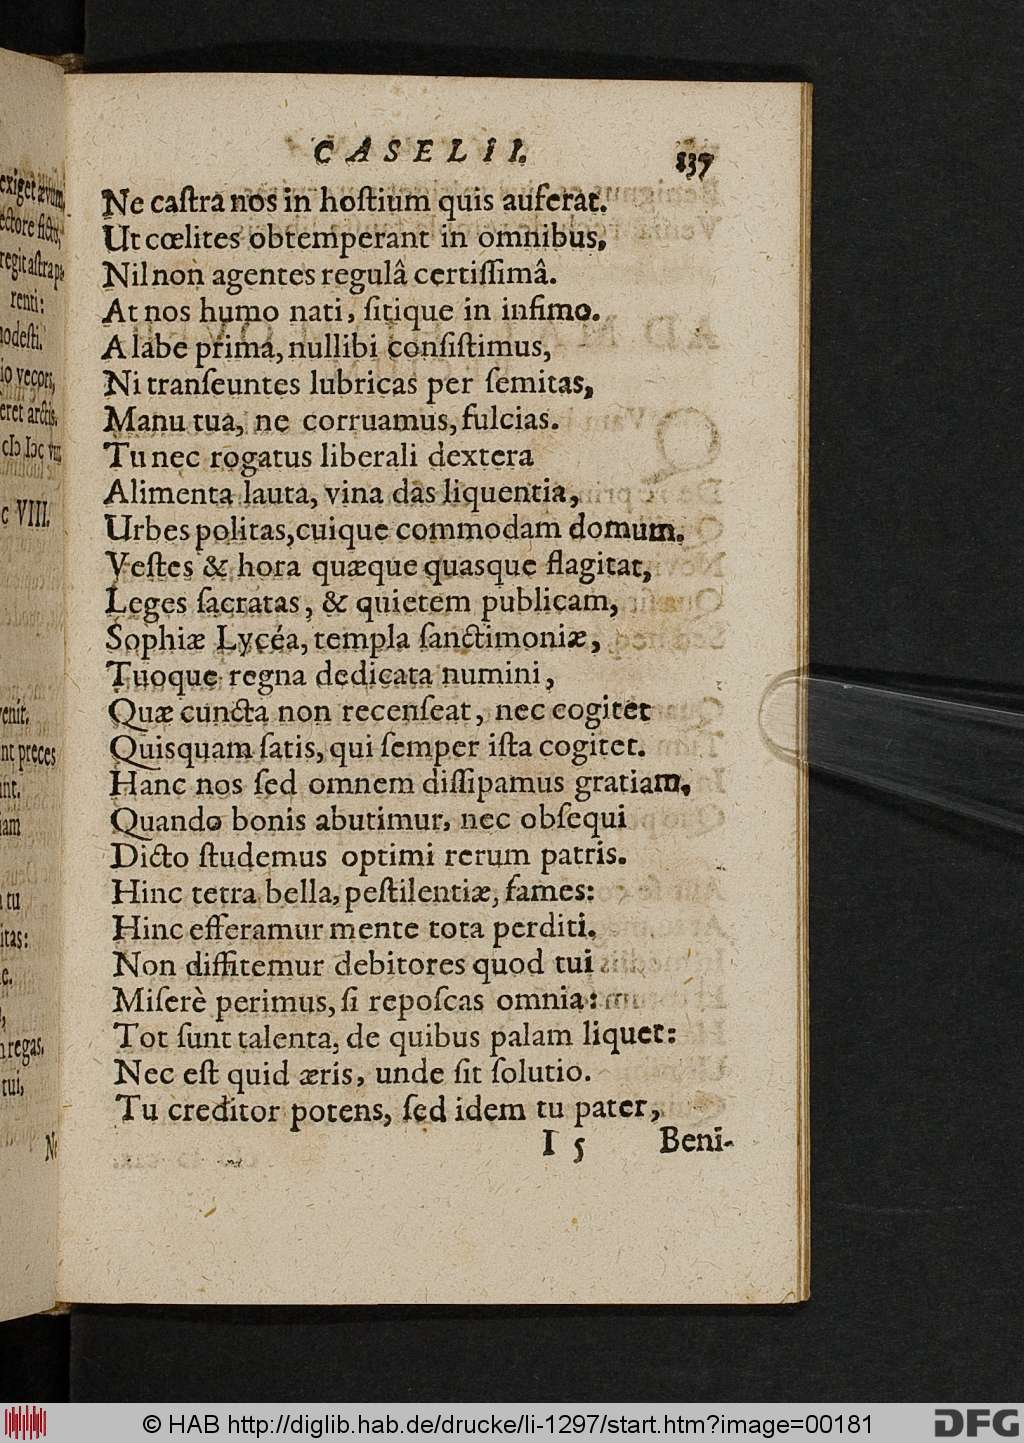 CASELII.
137
Ne caſtra nos in hoſtium quis auferat.
Ut cœlites obtemperant in omnibus,
Nil non agentes regulâ certiſſimâ.
At nos humo nati, ſitique in infimo.
A labe prima, nullibi conſiſtimus,
Ni tranſeuntes lubricas per ſemitas,
Manu tua, ne corruamus, fulcias.
Tu nec rogatus liberali dextera
Alimenta lauta, vina das liquentia,
Urbes politas, cuique commodam domum.
Veſtes & hora quæque quasque flagitat,
Leges ſacratas, & quietem publicam,
Sophiæ Lycéa, templa ſanctimoniæ,
Tuoque regna dedicata numini,
Quæ cuncta non recenſeat, nec cogitet
Quisquam ſatis, qui ſemper iſta cogitet.
Hanc nos ſed omnem diſſipamus gratiam,
Quando bonis abutimur, nec obſequi
Dicto ſtudemus optimi rerum patris.
Hinc tetra bella, peſtilentiæ, fames:
Hinc efferamur mente tota perditi.
Non diffitemur debitores quod tui
Miſerè perimus, ſi repoſcas omnia:
Tot ſunt talenta, de quibus palam liquet:
Nec eſt quid æris, unde ſit ſolutio.
Tu creditor potens, ſed idem tu pater,
I 5 Beni-
exiget ævum,
ectore
renti:
modeſti.
vecors,
arctis.
VIII.
preces
tu
regas,
tui,
© HAB http://diglib.hab.de/drucke/li-1297/start.htm?image=00181
DFG